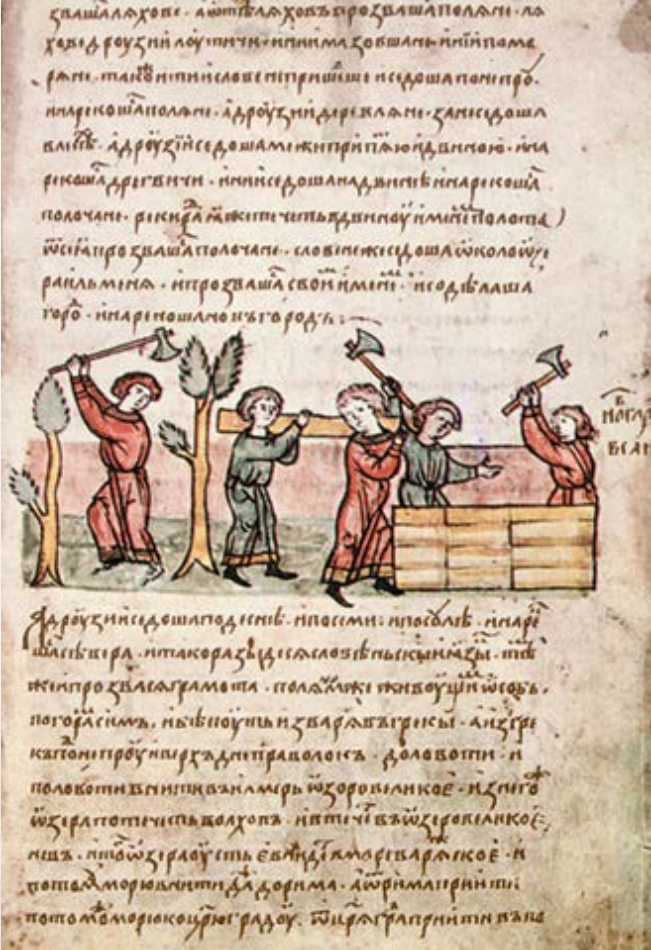 звашалѧховє · аѿтѣⷯлѧховъпрозвашаполѧнє · лѧ
ховєдроузїилоутичи · ининмазовшанє · инїипомє
рѧнє · такоⷤитиисловєнєпришєшє иседошаподнєпроⷹ ·
инарєкошⷭ҇аполѧнє · адроузиидєрєвлѧнє · занєсєдоша
влѣсⷯѣ · адроузїиседошамєжиприпѧⷮюидвиною · ина
рєкошⷭ҇адрєгвичи · инииседошанадвинѣ инарєкошⷭ҇а
полочанє · рєкираⷣ ꙗжєтєчєтьвдвиноу имєнⷨєⷨполота
ѿсєѧпрозвашⷭ҇аполочанє · словєнєжєседошаѡколоѡзє
раильмєнѧ · ипрозвашⷭ҇асвоиⷨимєнєⷨ · исоделаша
гороⷣ · инарєкошановъгородъ :
новⷢ҇ъ
адроузиисєдошаподєснѣ · ипосєми · ипосоулѣ · инарєⷱ
шⷭ҇асѣвєра · итакоразыдєсѧсловѣньскыиѧзыⷦ · тѣⷨ
жєипрозвасѧграмота · полѧноⷨжєживоущиⷨѿсобѣ ·
погораⷨсимъ · ибѣпоутьизварѧⷢ҇въгрєкы · аизгрє
къподнєпроу ивєрхъднѣправолокъ · доловоти · и
половотивнитивъилмєрь ѡзоровєликоє · изнєгоⷤ
ѡзєрапотєчєтьволховъ · ивтєчєⷮвъѡзєровєликоє
нєвъ · итогоѡзєраоустьєвнидєⷮвморєварѧскоє · и
потомоⷨморювнитидⷪарима · аѿриманприити
потомоⷤморюкоцрⷭ҇юградоу · ѿцрѧграⷣприитивъпо